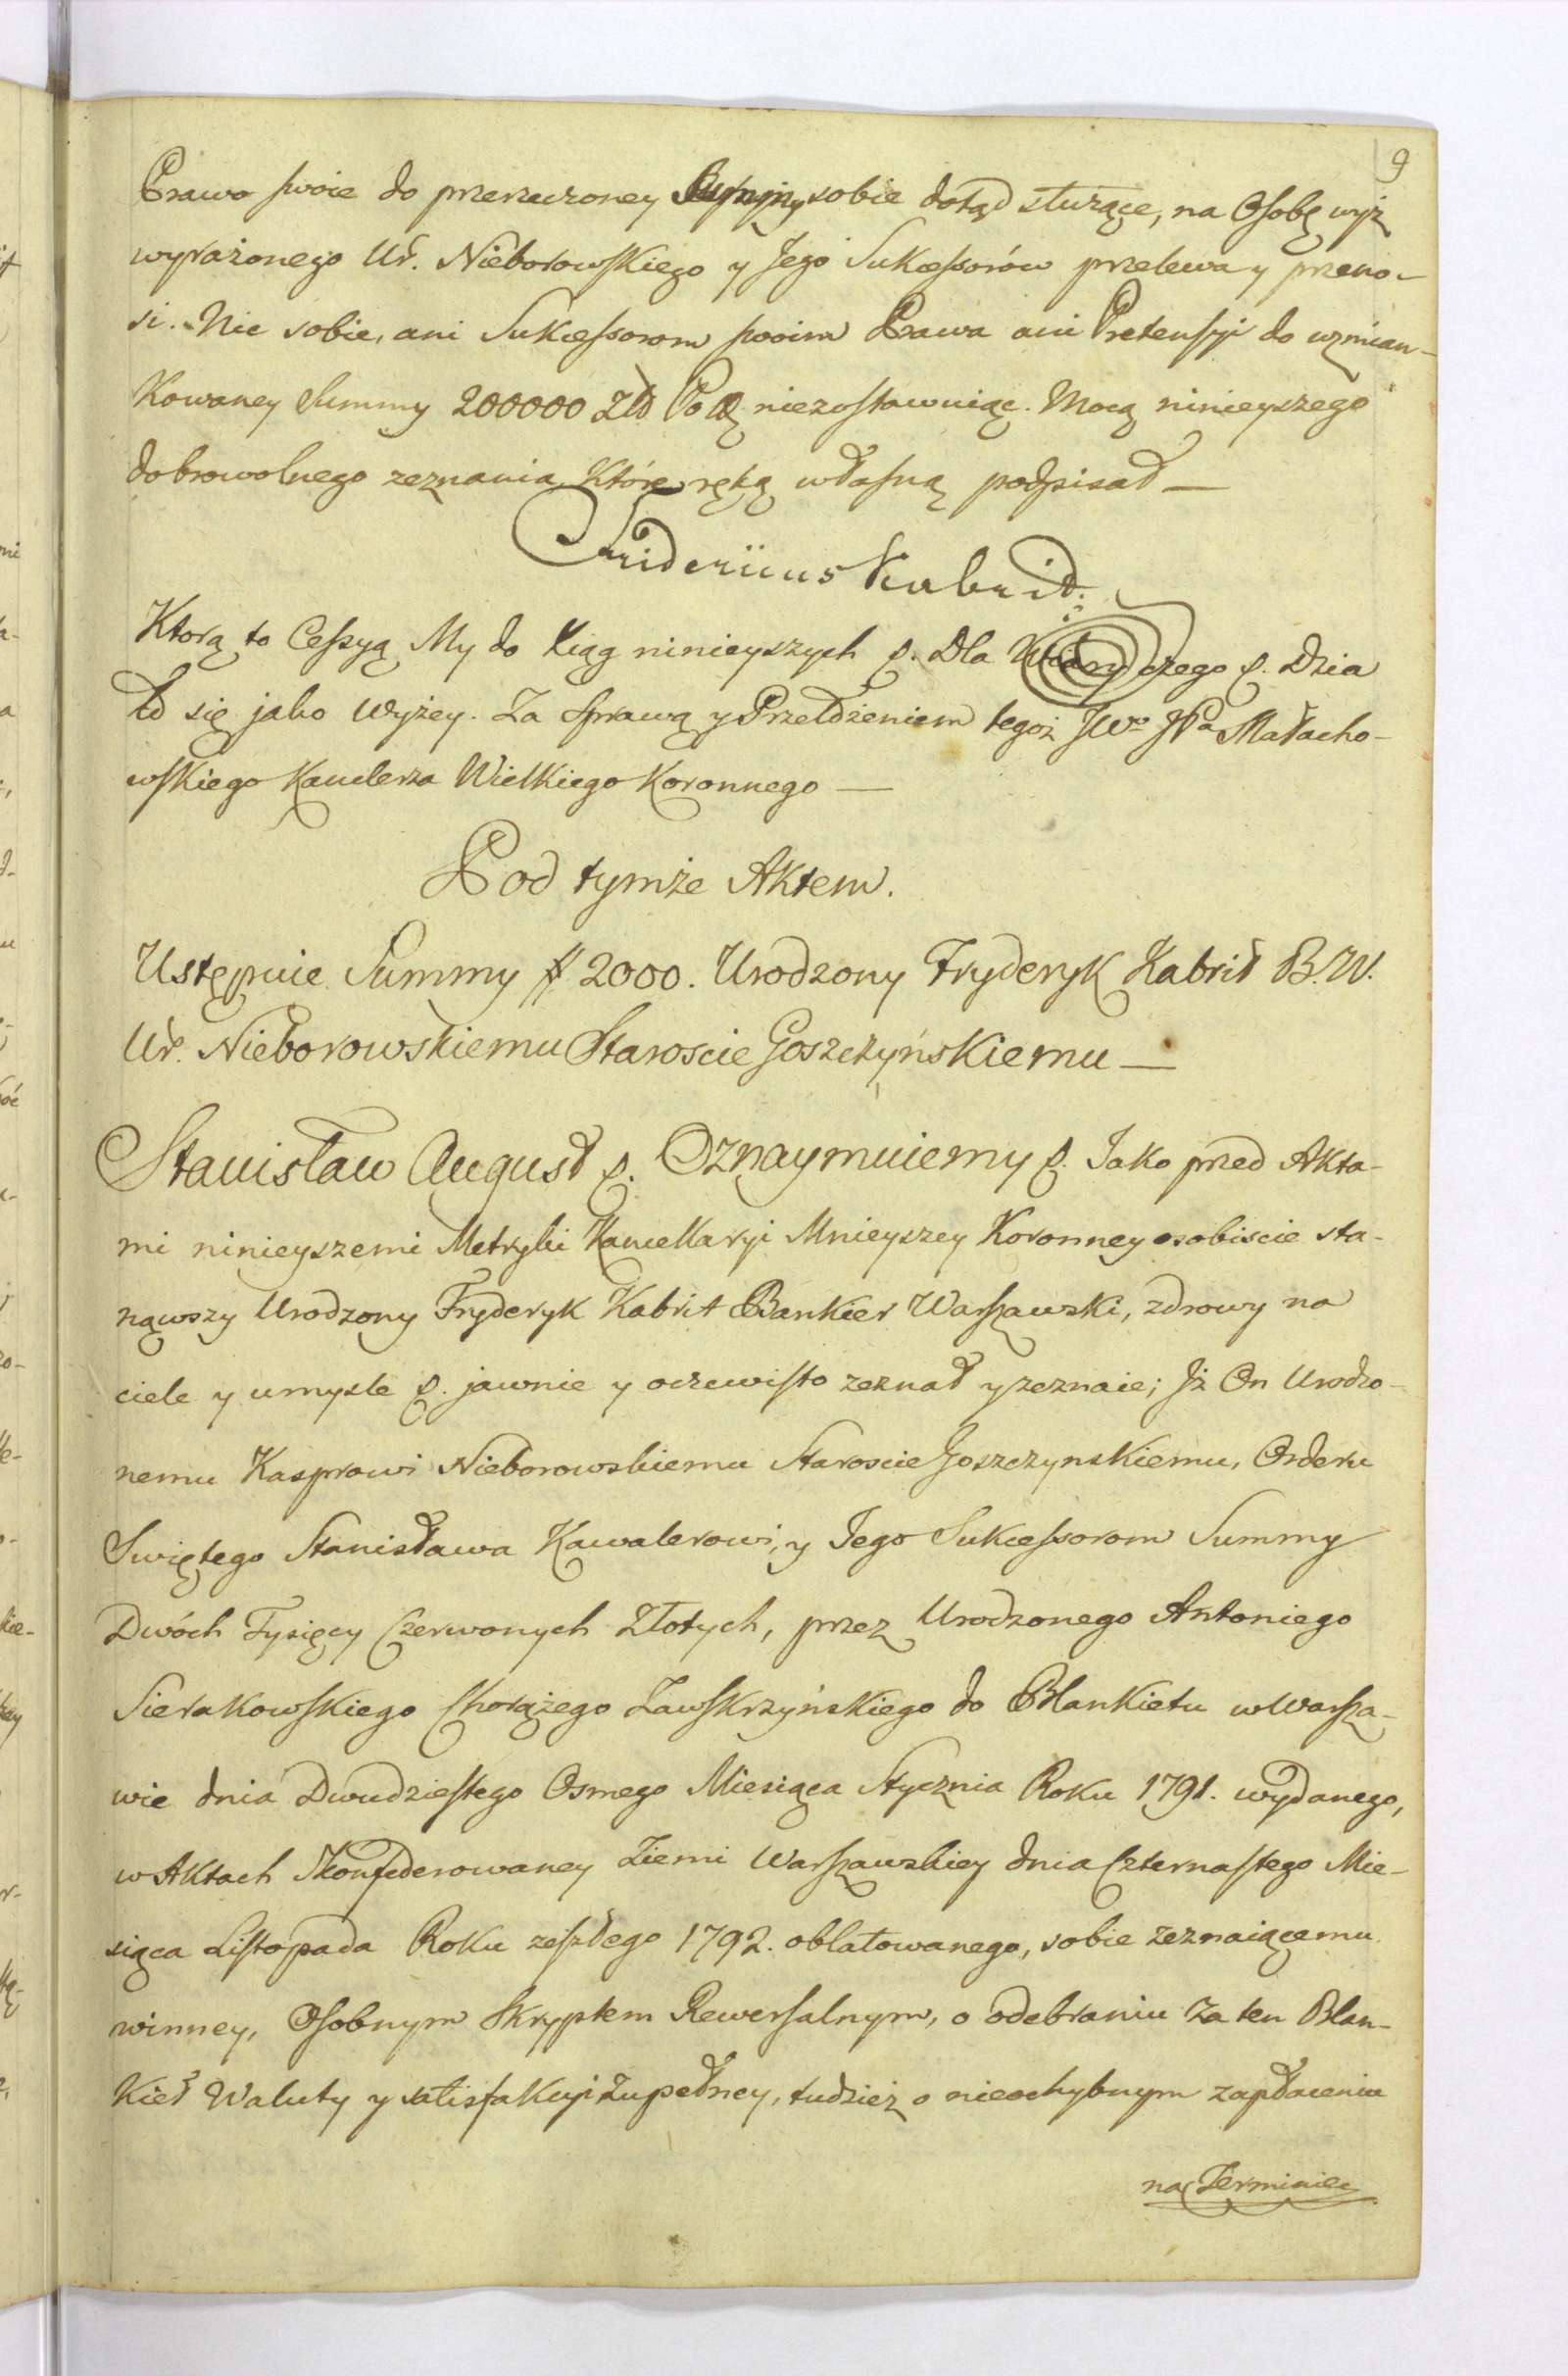 9
Prawo swoie do przerzeczoney Summy sobie dotąd służące, na Osobę wyż
wyrażonego Ur. Nieborowskiego y Jego Sukcessorów przelewa y przeno-
si. Nic sobie, ani Sukcessorom swoim Prawa ani Pretensyi do wzmian-
kowaney Summy 200000 Zło Pol niezostawuiąc. Mocą ninieyszego
dobrowolnego zeznania, które ręką własną podpisał —
Fridericus Kabrit.
Którą to Cessyą My do Xiąg ninieyszych p. Dla którey czego p. Dzia
ło się jako wyżey. Za Sprawą y Przełożeniem tegoż JWo JPa Małacho-
wskiego Kanclerza Wielkiego Koronnego —
Pod tymże Aktem.
Ustępuie Summy # 2000. Urodzony Fryderyk Kabrit B. W.
Ur. Nieborowskiemu Staroscie Goszczyńskiemu —
Stanisław August p. Oznaymuiemy p. Jako przed Akta-
mi ninieyszemi Metryki Kancellaryi Mnieyszey Koronney osobiscie sta-
nąwszy Urodzony Fryderyk Kabrit Bankier Warszawski, zdrowy na
ciele y umysle p. jawnie y oczewisto zeznał y zeznaie; Iż On Urodzo-
nemu Kasprowi Nieborowskiemu Staroscie Goszczynskiemu, Orderu
Swiętego Stanisława Kawalerowi, y Jego Sukcessorom Summy
Dwóch Tysięcy Czerwonych Złotych, przez Urodzonego Antoniego
Sierakowskiego Chorążego Zawskrzyńskiego do Blankietu w Warsza-
wie dnia Dwudziestego Osmego Miesiąca Stycznia Roku 1791. wydanego,
w Aktach Skonfederowaney Ziemi Warszawskiey dnia Czternastego Mie-
siąca Listopada Roku zeszłego 1792. oblatowanego, sobie zeznaiącemu
winney, Osobnym Skryptem Rewersalnym, o odebraniu za ten Blan-
kiet Waluty y satisfakcyi zupełney, tudzież o nieochybnym zapłaceniu
na Terminie